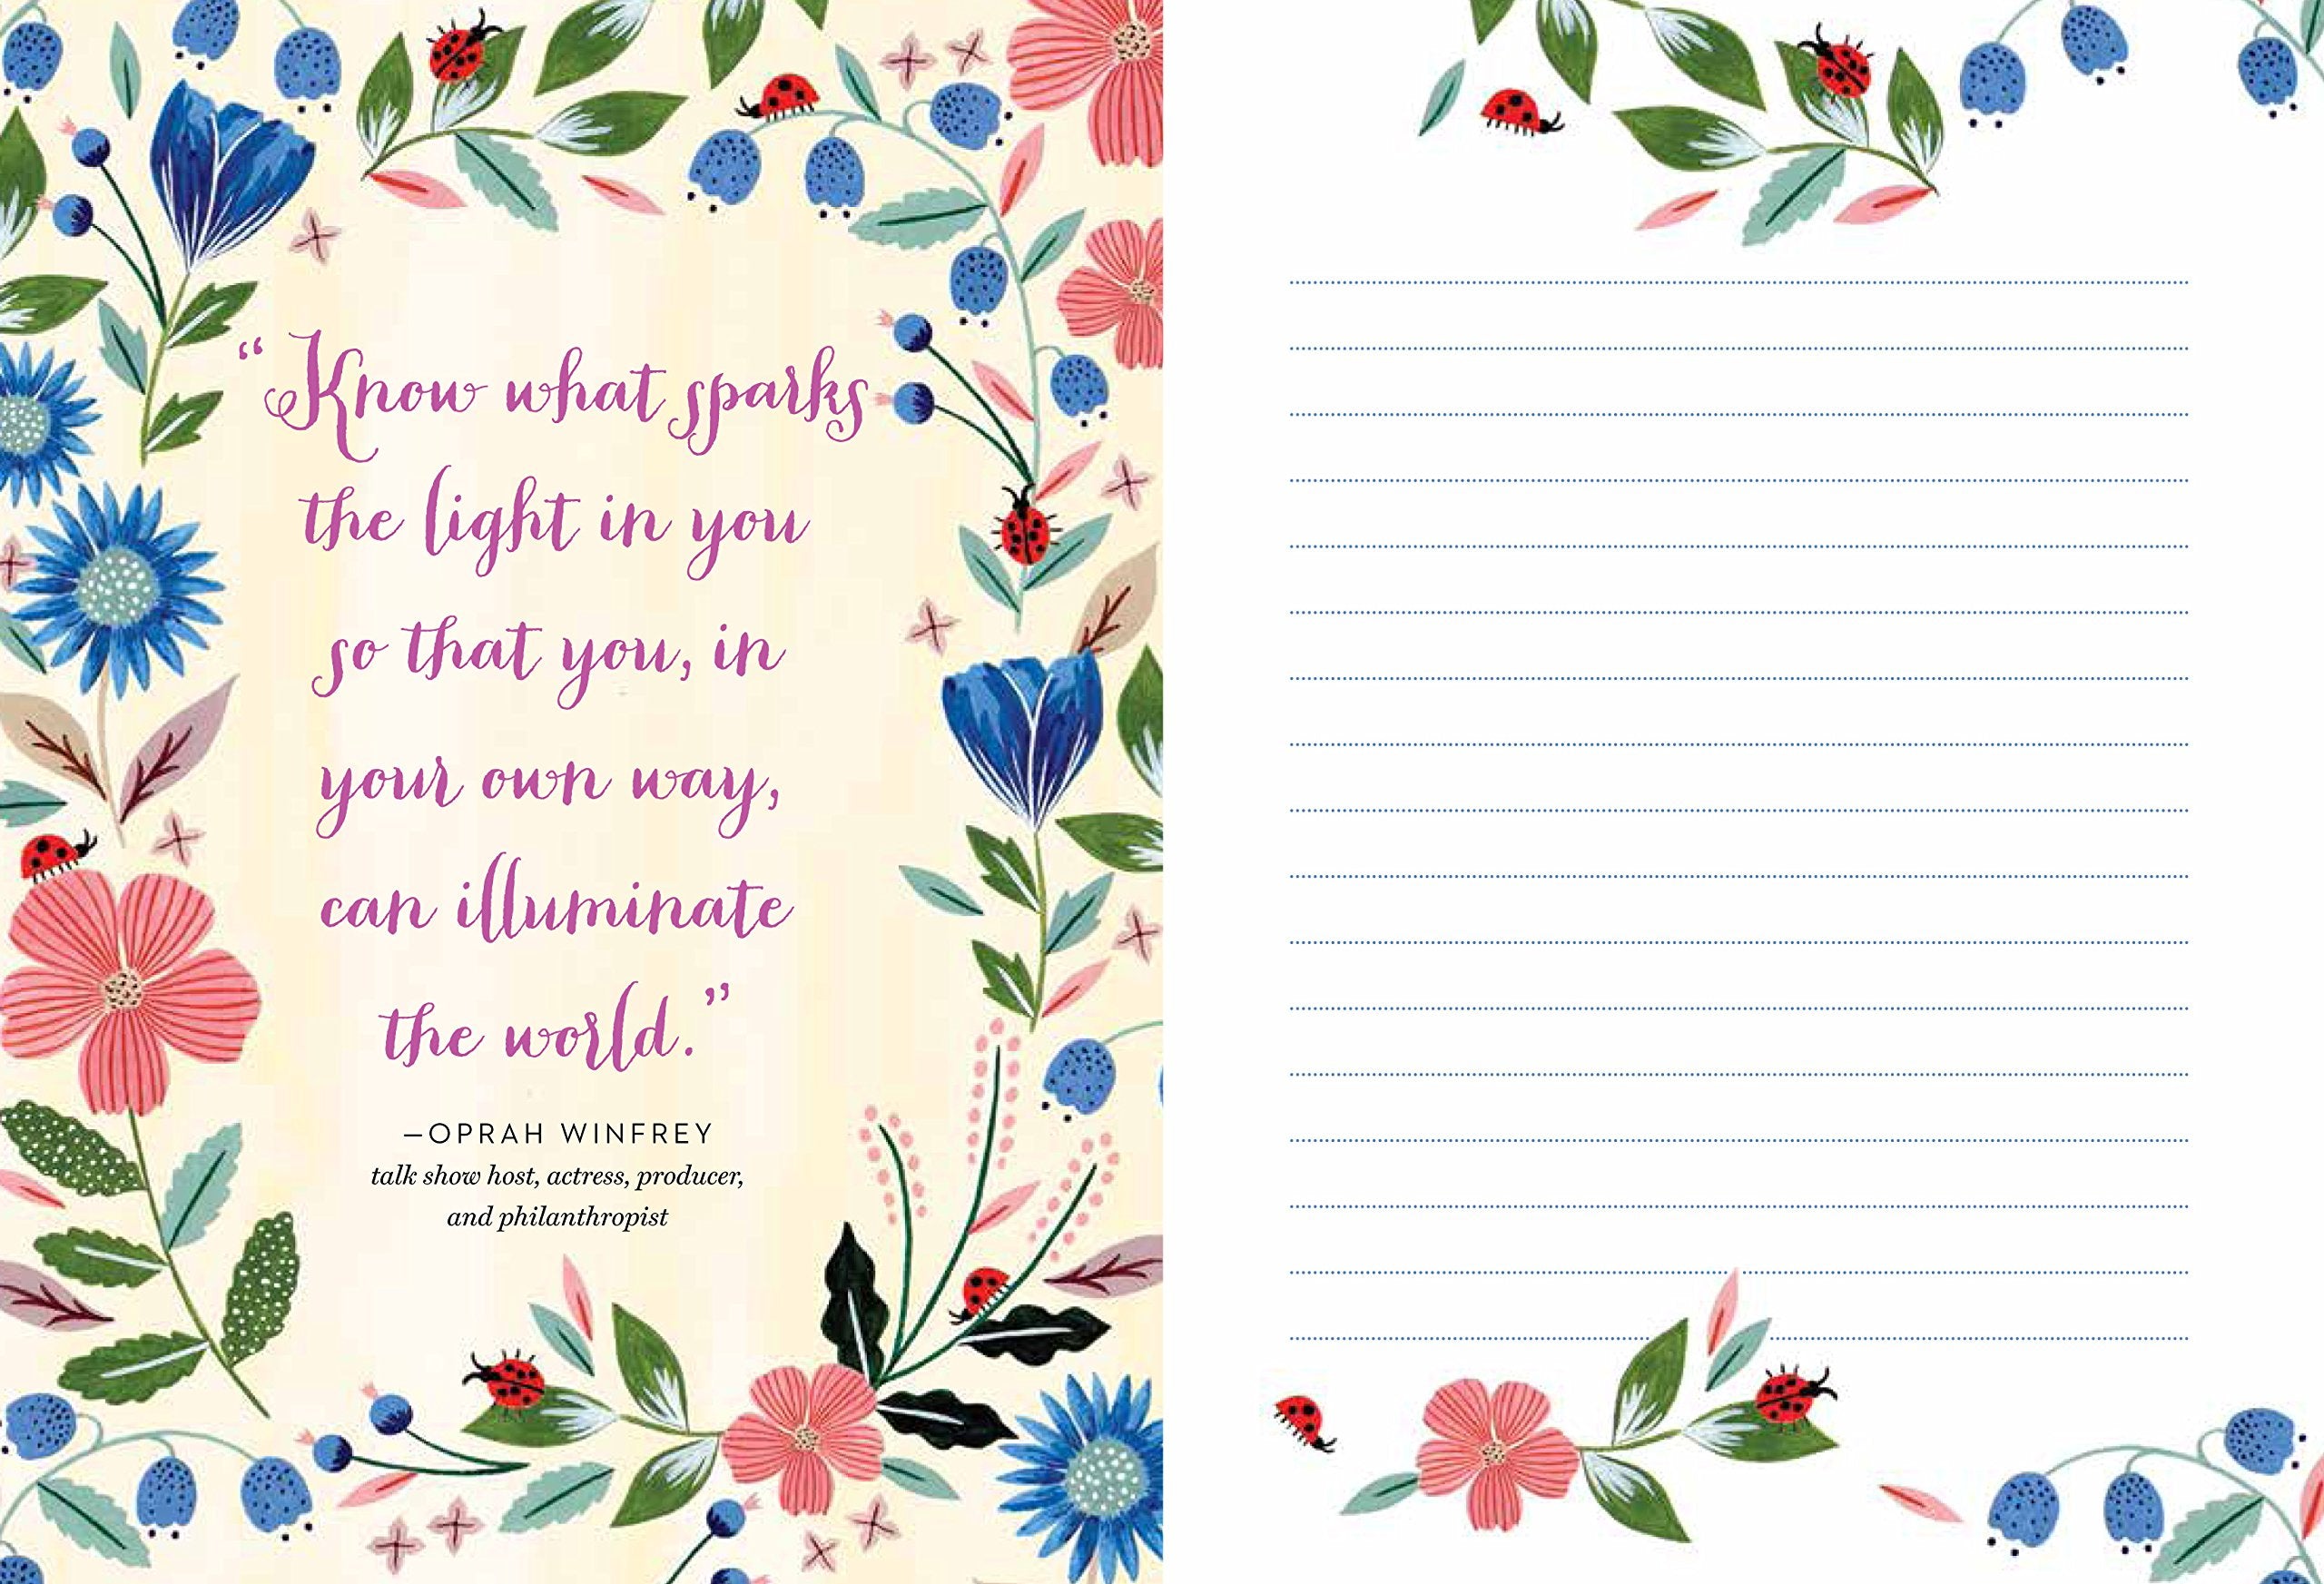 “Know what sparks
the light in you
so that you, in
your own way,
can illuminate
the world.”
—OPRAH WINFREY
talk show host, actress, producer,
and philanthropist